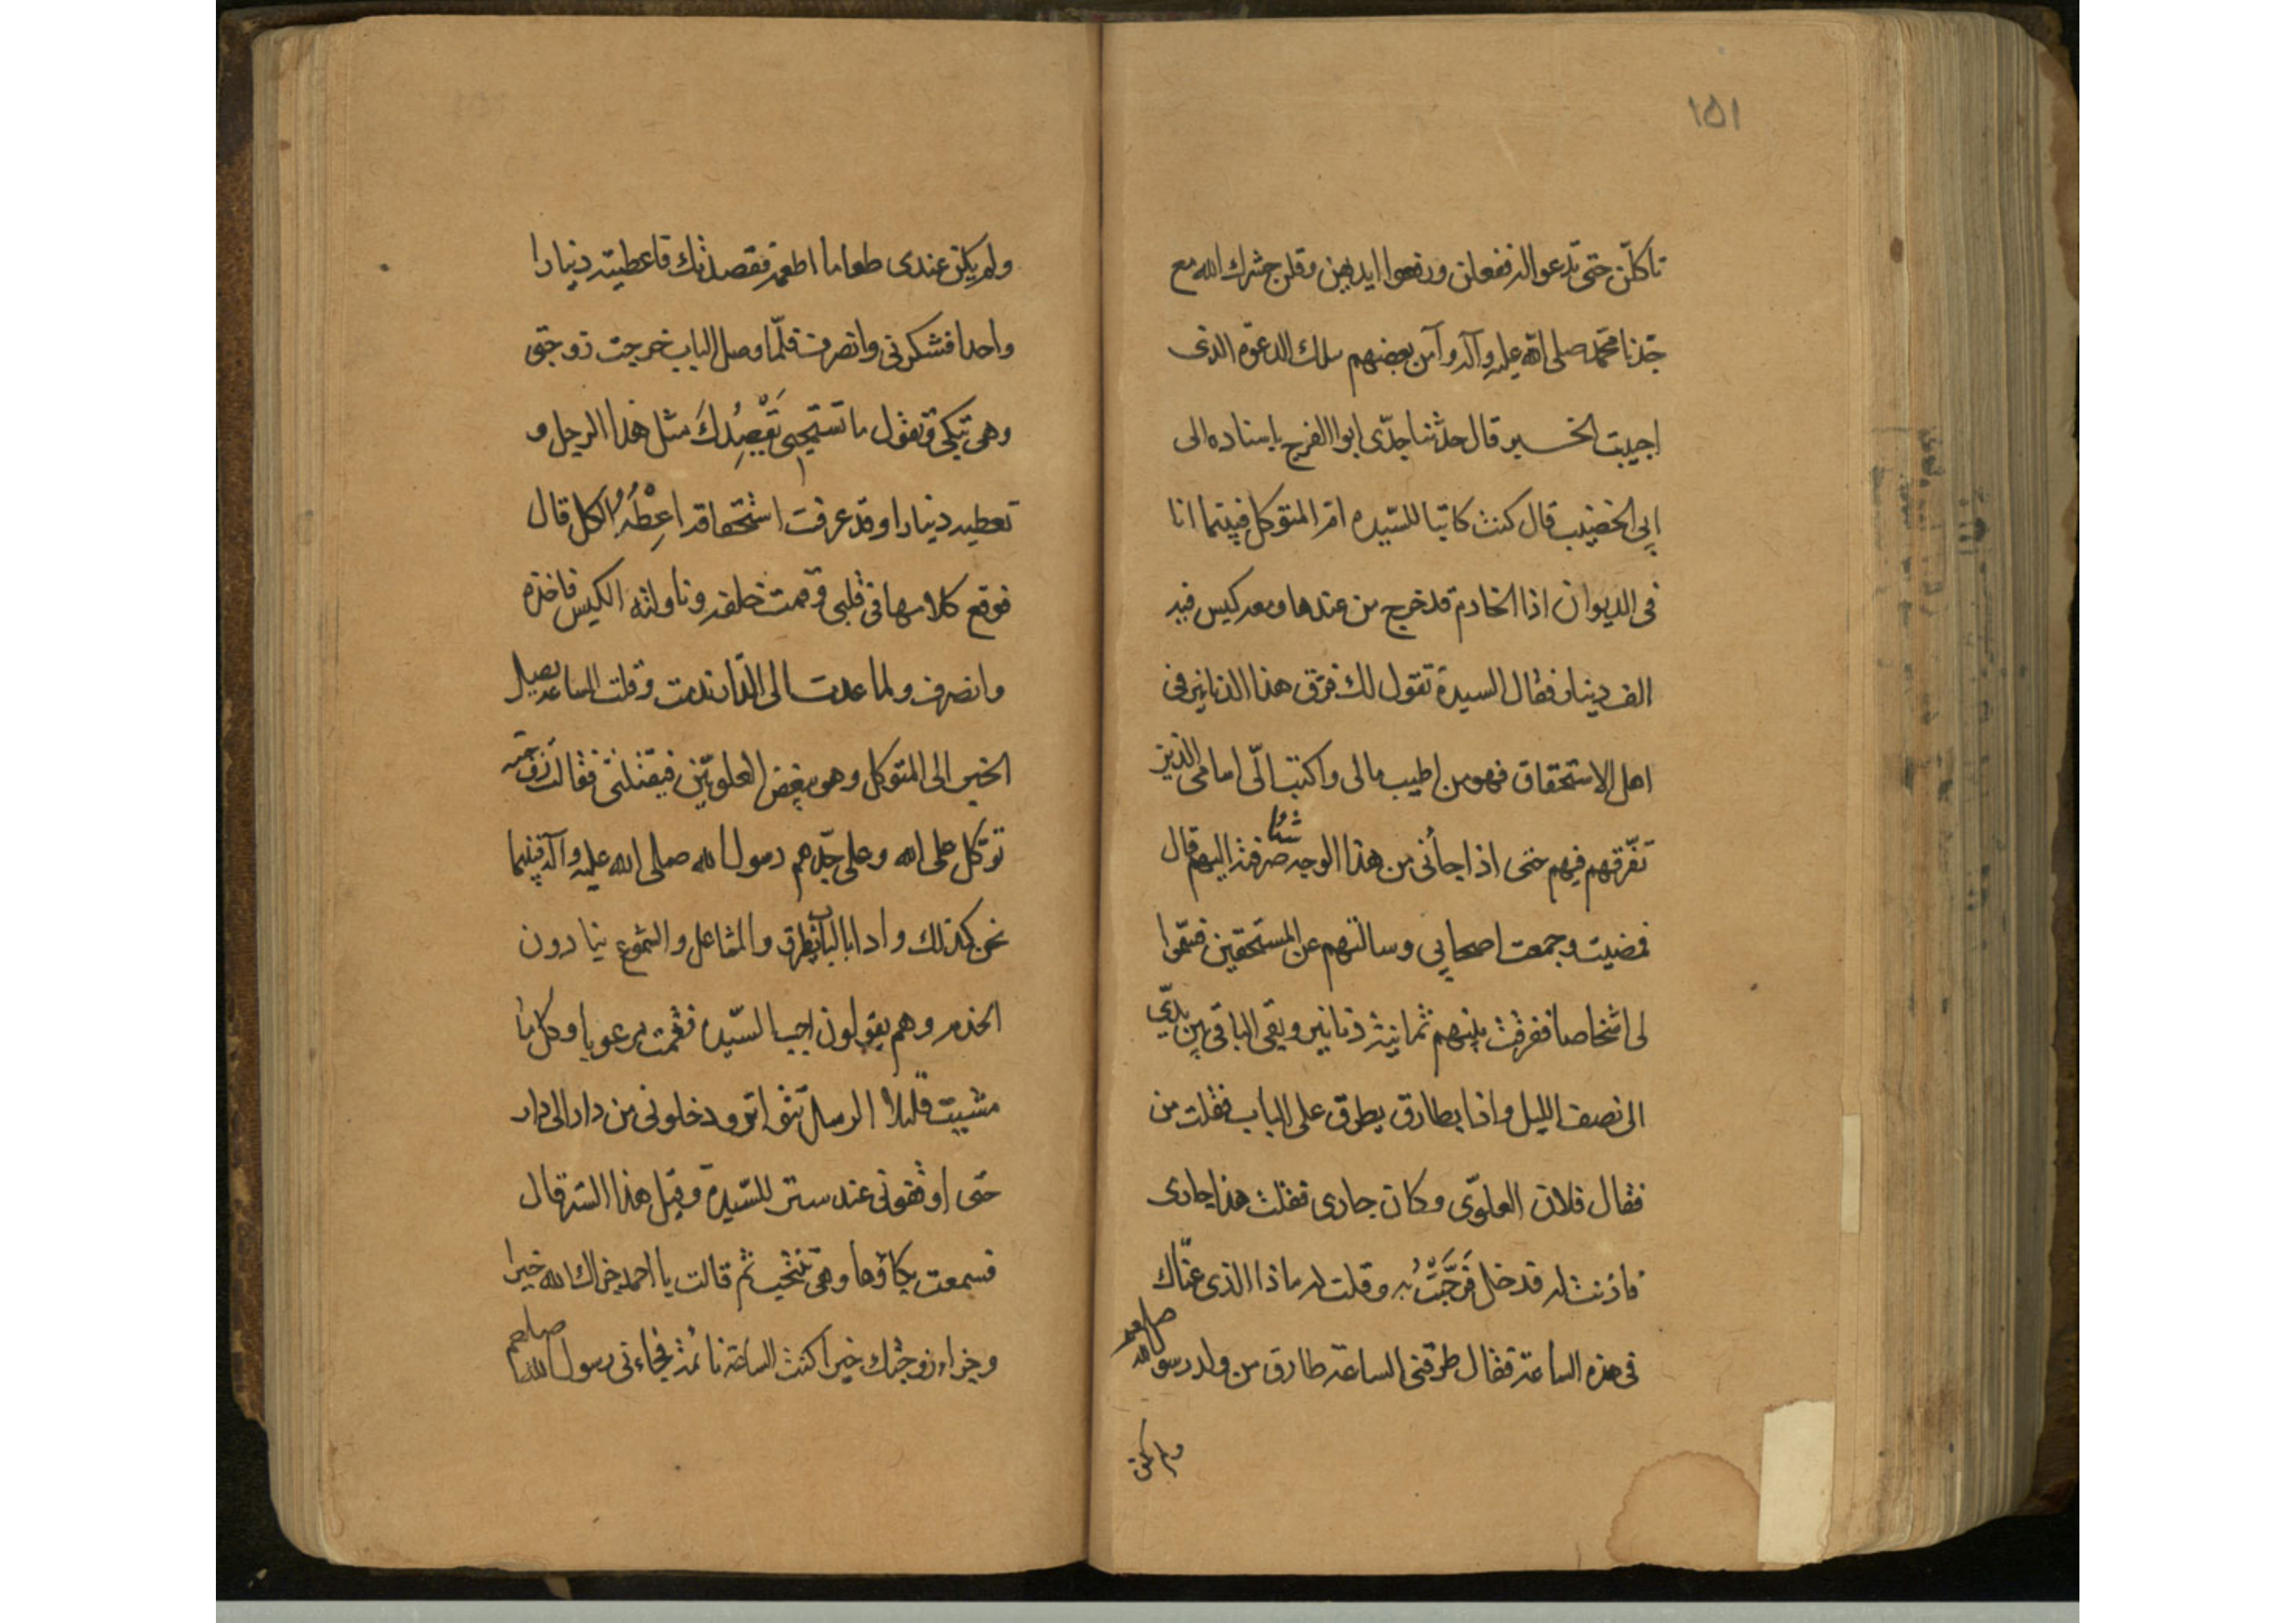 ١٥١
تاكلن حتى تدعوا له ففعلن ورفعوا ايديهن وقلن حشرك الله مع
جدنا محمد صلى الله عليه وآله وآمن بعضهم بتلك الدعوة الذى
اجيبت الخبر قال حدثنا جدى ابوا الفرج باسناده الى
ابى الخضيب قال كنت كاتبا للسيده ام المتوكل فبينما انا
فى الديوان اذا الخادم قد خرج من عندها ومعه كيس فيه
الف دينار فقال السيدة تقول لك فرق هذا الدنانير فى
اهل الاستحقاق فهو من اطيب مالى واكتب الىّ اسامى الذين
تفرقهم فيهم حتى اذا جائنى من هذا الوجه شئا صرفته اليهم قال
فمضيت وجمعت اصحابى وسالتهم عن المستحقين فسمّوا
لى اشخاصا ففرقت بينهم ثمانية دنانير وبقى الباقى بين يدىّ
الى نصف الليل واذا بطارق يطرق على الباب فقلت من
فقال فلان العلوّى وكان جارى فقلت هذا جارى
فاذنت له فدخل فَرَحَّبْتُ به وقلت له ماذا الذى عنّاك
فى هذه الساعة فقال طرقنى الساعة طارق من ولد رسول الله صلعم
ولم يكن
ولم يكن عندى طعاما اطعمه فقصدتك فاعطيته دينارا
واحدا فشكرنى وانصرف فلمّا وصل الباب خرجت زوجتى
وهى تبكى وتقول ما تستحيى يَقْصِدُكَ مثل هذا الرجل و
تعطيه دينارا وقد عرفت استحقاقه اعْطِهُ الكل قال
فوقع كلامها فى قلبى وقمت خلفه وناولته الكيس فاخذه
وانصرف ولما عدت الى الدار ندمت وقلت الساعة يصل
الخبر الى المتوكل وهو يبغض العلويّين فيقتلنى فقالت زوجته
توكل على الله وعلى جدّهم رسول الله صلى الله عليه وآله فبينما
نحن كذلك واذا بالباب يطرق والمشاعل والشموع بيادون
الخدم وهم يقولون اجب السيّدة فقمت مرعوبا وكل ما
مشيت قليلا الرسل تتواتر ودخلونى من دار الى دار
حتى اوقفونى عند ستر للسيّدة وقيل هذا الستر قال
فسمعت بكاؤها وهى تنتحب ثم قالت يا احمد جزاك الله خيرا
وجزاء زوجتك خيرا كنت الساعة نائمة فجاءنى رسول الله صلعم